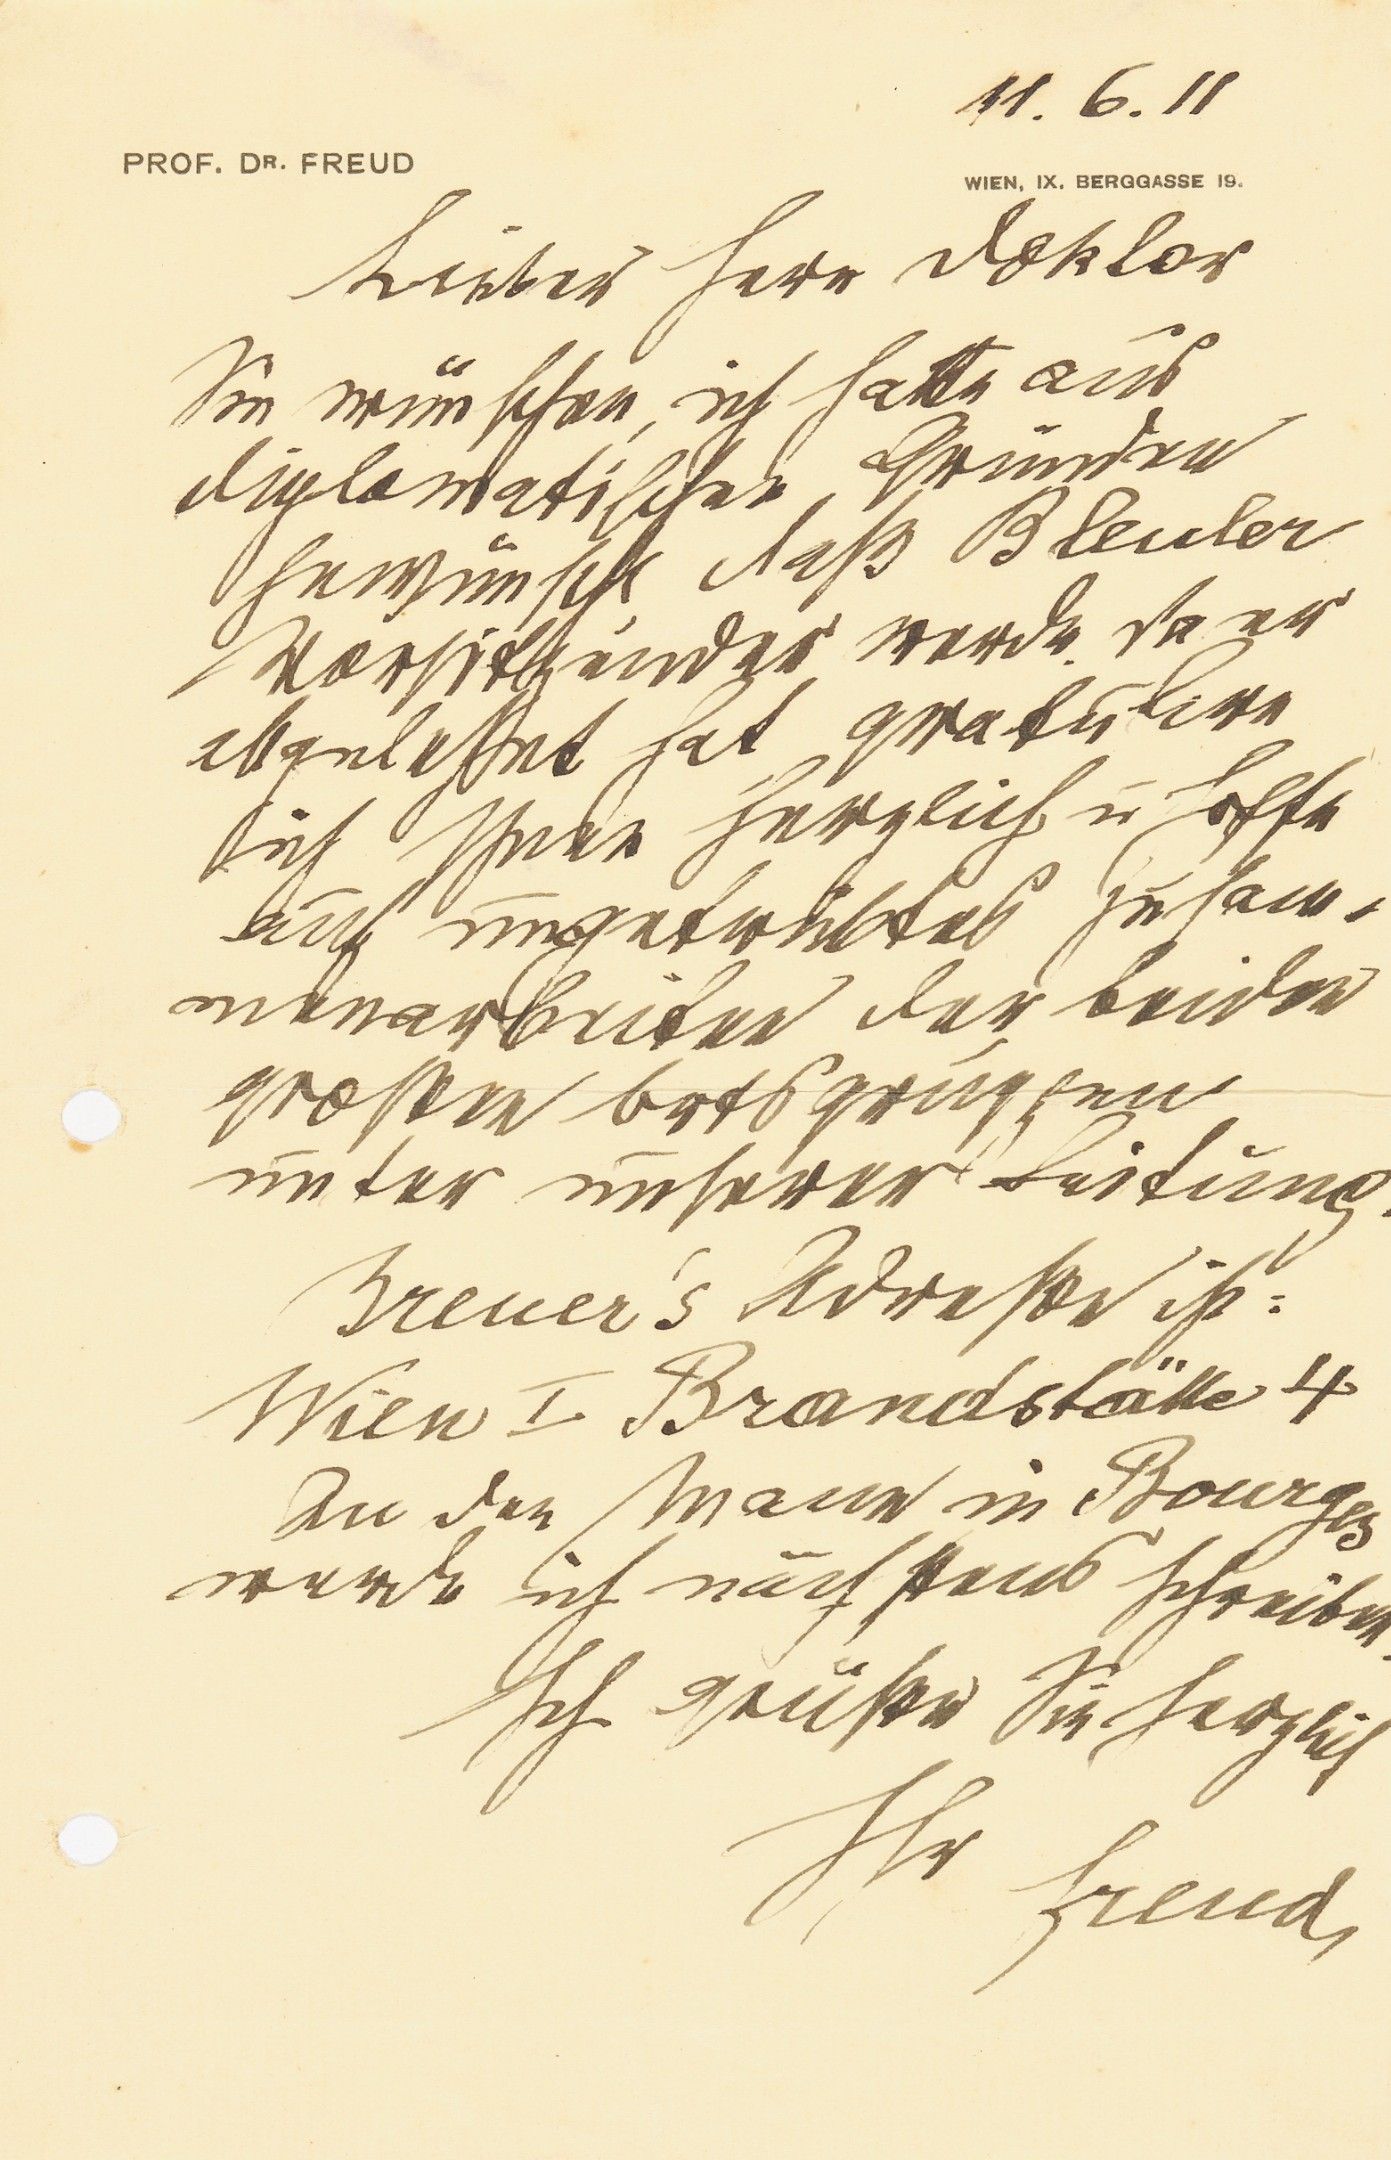 11. 6. 11
PROF. DR. FREUD
WIEN, IX. BERGGASSE 19.
Lieber Herr Doktor
Sie wünschen, ich hatte aus
diplomatischen Gründen
gewünscht daß Bleuler
Vorsitzender werde. Da er
abgelehnt hat gratulire
ich Ihnen herzlich u hoffe
auf ungetrübtes Zusam-
menarbeiten der beiden
großen Ortsgruppen
unter unserer Leitung.
Breuer's Adresse ist:
Wien I Brandstätte 4
An den Mann in Bourges
werde ich nächstens schreiben.
Ich grüße Sie herzlich
Ihr
Freud